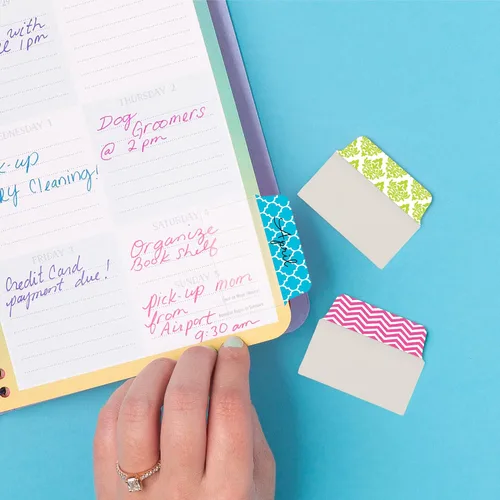 with
1pm
THURSDAY 2
Dog
Groomers
@ 2pm
WEDNESDAY 1
-up
Cleaning!
SATURDAY
Organize
Book shelf
FRIDAY 3
Credit Card
payment due!
SUNDAY 5
pick-up mom
from
Airport
9:30 am
April